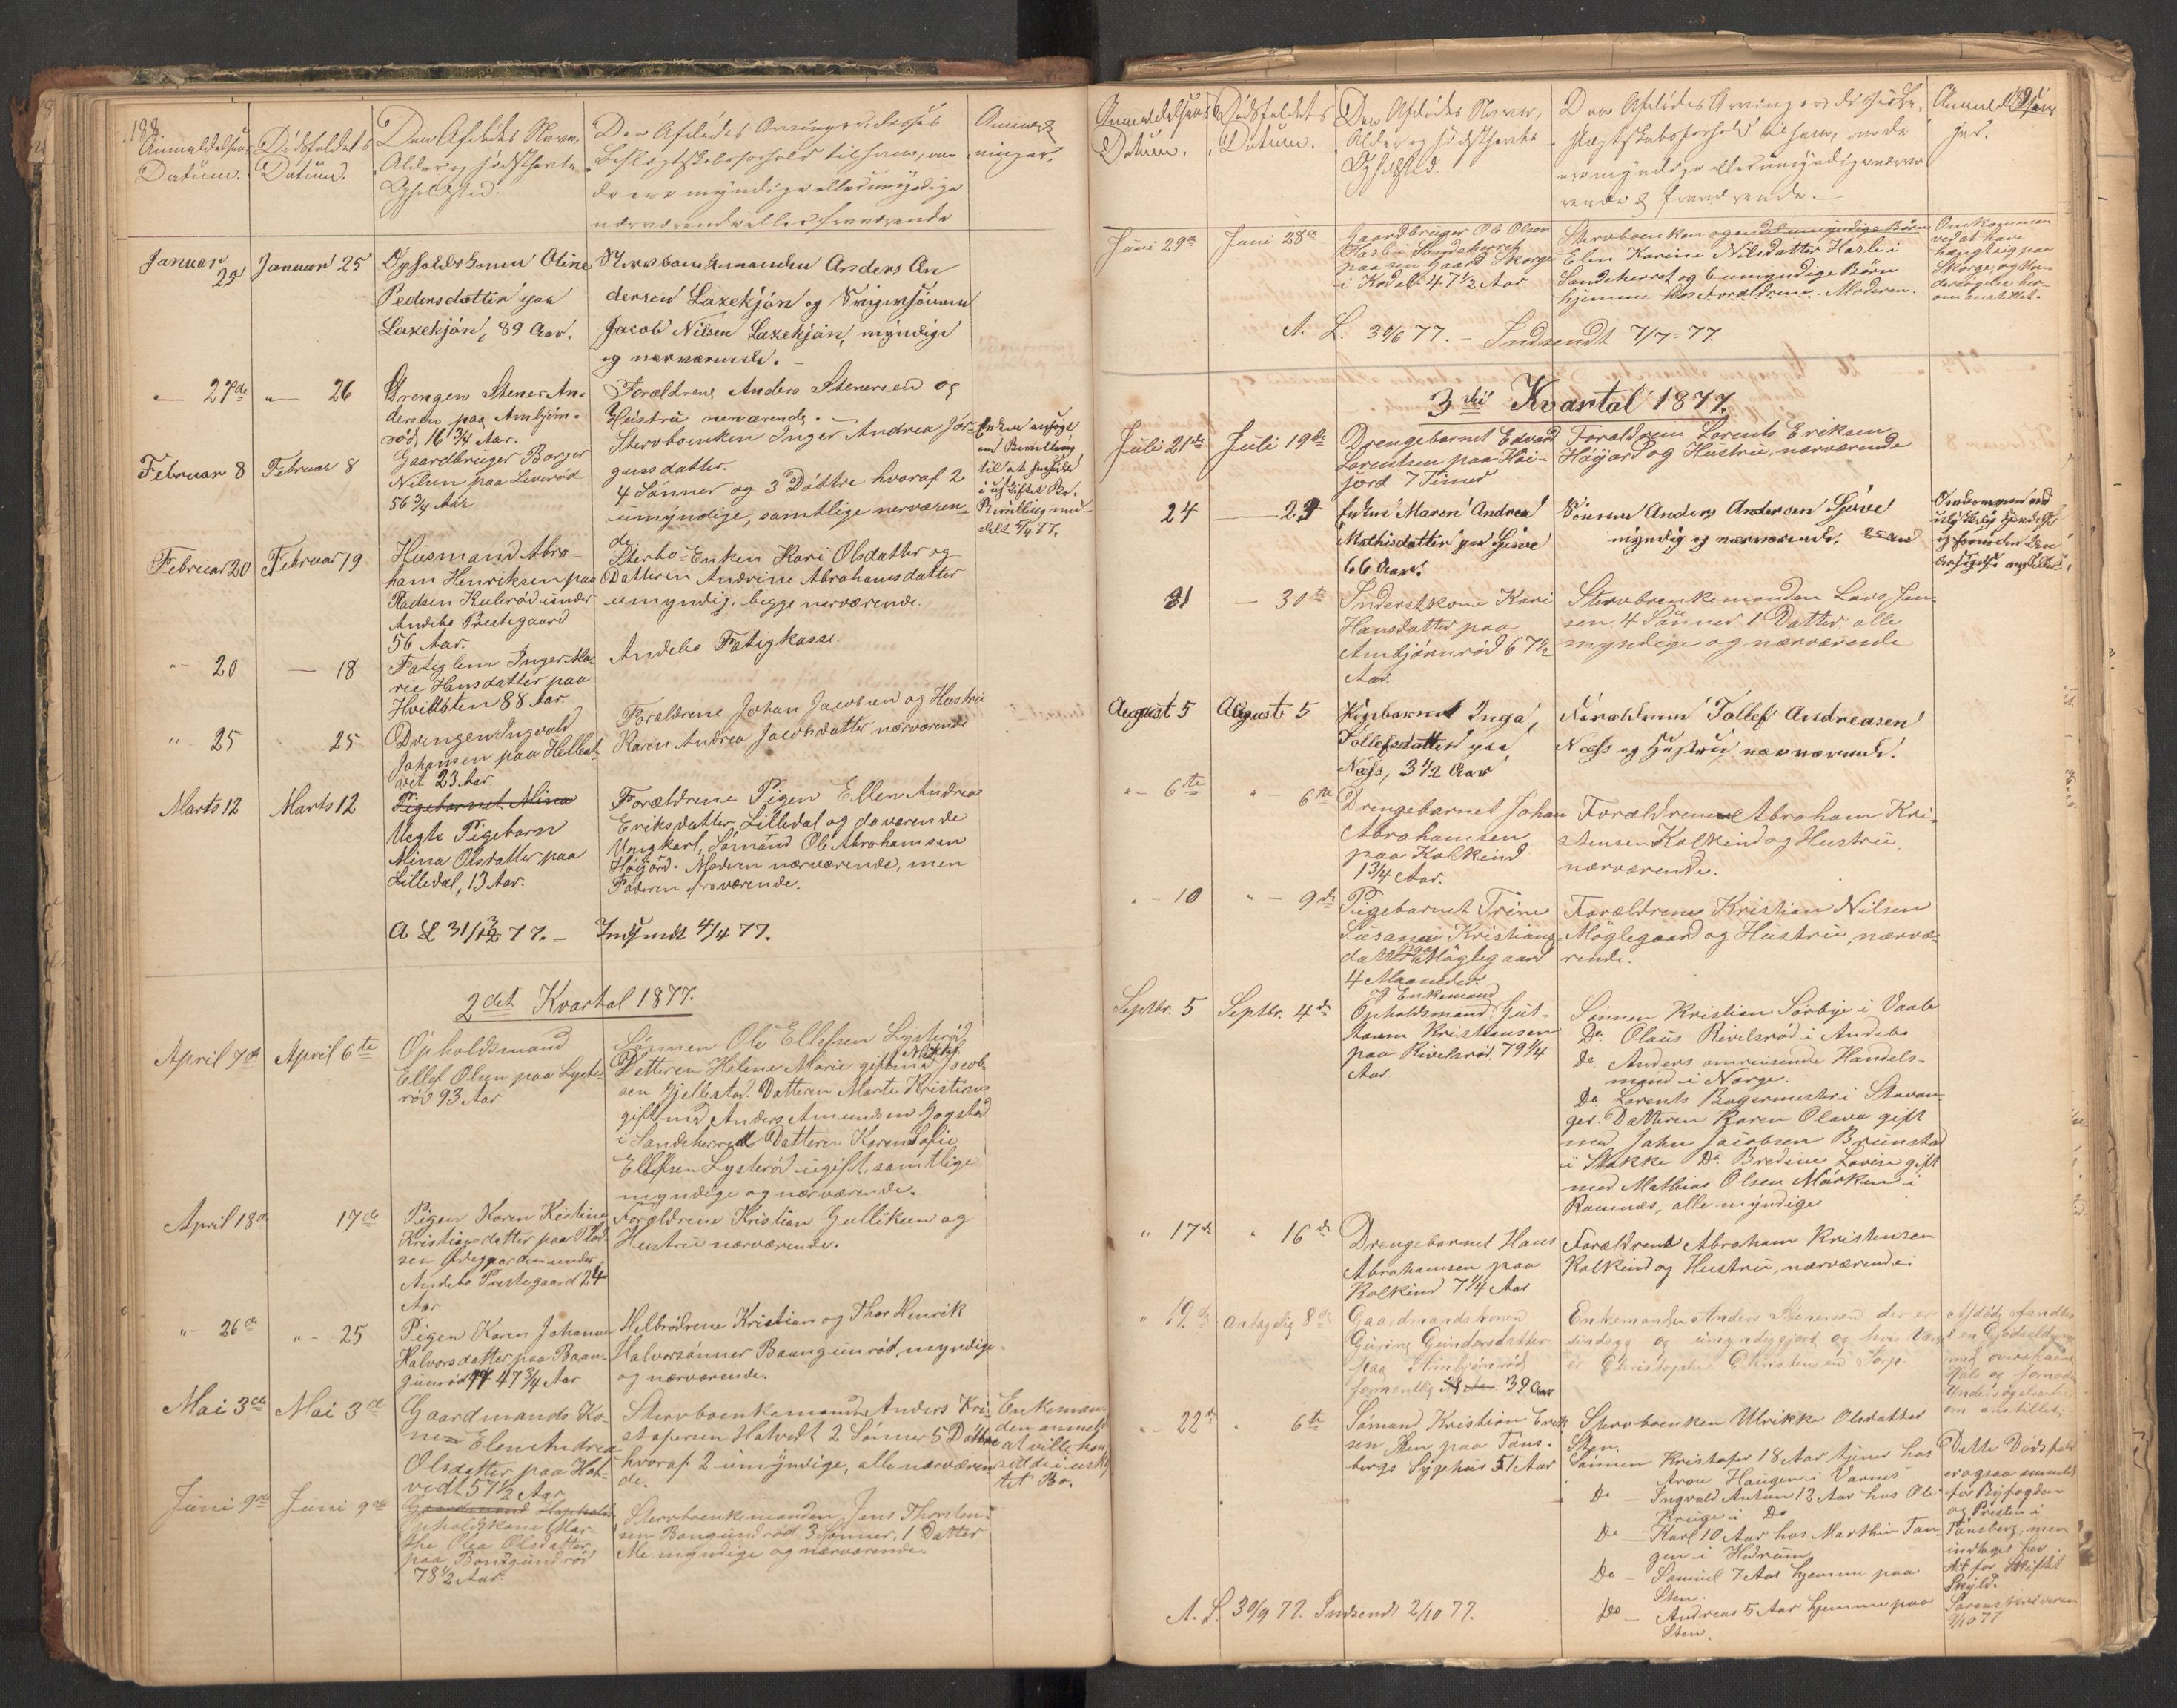 188
Anmeldelsens
Datum.
Dødsfaldets
Datum.
Den Afdødes Navn,
Alder og sidst havte
Opholdssted.
Den Afdødes Arvinger, disses
Beslægtskabsforhold til ham, om
de ere myndige eller umyndige
nærværende eller fraværende
Anmærk
ninger.
Januar
25
Januar 25
Opholdskonen Oline
Pedersdatter paa
Laxekjøn, 89 Aar.
Anders An
dersen Laxekjøn og
Jacob Nilsen Laxekjøn, myndige
og nærværende. -
" 27de
" 26
Drengen Stener An-
dersen paa Arnbjørn-
rød 16 3/4 Aar.
Forældrene Anders Stenersen og
Hustru nerværende. -
Februar 8
Februar 8
Gaardbruger Borger
Nilsen paa Liverød
56 3/4 Aar
Stervboenken Inger Andrea Jør-
gensdatter.
4 Sønner og 3 Døttre hvoraf 2
umyndige, samtlige nerværen-
de
Enken ansøge
om Bevilling
til at
i uskiftet Bo.
Februar 20
Februar 19
Husmand Abra-
ham Henriksen paa
Pladsen Kulerød under
Andebo Prestegaard
56 Aar.
Sterbo-Enken Kari Olsdatter og
Datteren Andrine Abrahamsdatter
umyndig, begge nerværende.
" 20
— 18
Fatiglem Inger Ma-
rie Hansdatter paa
Hvittsten 88 Aar.
Andebo Fatigkasse.
" 25
25
Drengen Ingvald
Johansen paa
23 Aar
Forældrene Johan Jacobsen og Hustru
Karen Andrea Jacobsdatter nærværende
Marts 12
Marts 12
Pigebarnet Mina
Uegte Pigebarn
Mina Olsdatter paa
Lilledal, 13 Aar.
Forældrene Pigen Ellen Andrea
Eriksdatter, Lilledal og daværende
Ungkarl, Sømand Ole Abrahamsen
Høijord. Moderen nærværende, men
Faderen fraværende.
A L 31/3 77. - Indsendt 4/4 77.
2det Kvartal 1877.
April 7de
April 6te
Opholdsmand
Ellef Olsen paa Lyste-
rød 93 Aar
Sønnen Ole Ellefsen Lysterød
Datteren Helene Marie gift med Mathis Jacob
sen Gjellestad. Datteren Marte Kristine
gift med Anders Amundsen Gogstad
i Sandeherred Datteren Karen Sofie
Ellefsen Lysterød ugift, samtlige
myndige og nærværende.
April 18de
17de
Pigen Karen Kristine
Kristiansdatter paa Plad
sen under
Andebo Prestegaard 24
Aar
Forældrene Kristian Gulliksen og
Hustru nærværende.
" 26de
" 25
Pigen Karen Johanne
Halvorsdatter paa Baan-
gunrød 47 3/4 Aar
Helbrødrene Kristian og Thor Henrik
Halvorsønner Baangunrød, myndige
og nærværende.
Mai 3de
Mai 3de
Gaardmands Ko-
ne Elen Andrea
Olsdatter paa Hat-
vedt 57 1/2 Aar
Stervboenkemanden Anders Kri-
stofersen Hatvedt 2 Sønner 5 Døttre
hvoraf 2 umyndige, alle nærværen
de.
Enkeman
den anmeldt
at ville hen
sidde i uskif
tet Bo.
Juni 9de
Juni 9de
Opholdskone Mar
the Olea Olsdatter
paa Bangundrød
78 1/2 Aar.
Stervboenkemanden Jens Thorsten-
sen Bangundrød 3 Sønner, 1 Datter
Alle myndige og nærværende.
Anmeldelsens
Datum.
Dødsfaldets
Datum.
Den Afdødes Navn,
Alder og sidst havte
Opholdssted.
Den Afdødes Arvinger disses Be-
slægtskabsforhold til ham, om de
ere myndige eller umyndige nærvæ
rende & fraværende. -
Juni 29de
Juni 28de
Gaardbruger Ole Olsen
Hasle i Sandeherred
paa sen Gaard Skorge
i Kodal 47 1/2 Aar
Stervboenken
Elen Karine Nilsdatter Hasle i
Sandeherred og 6 umyndige Børn
hjemme hos Forældrene. Moderen.
Omkommen
ved at have
hængt sig paa
Skorge, og Un-
dersøgelse her-
om anstillet.
A. L. 30/6 77. - Indsendt 7/7-77.
3die Kvartal 1877.
Juli 21de
Juli 19de
Drengebarnet Edvard
Lorentsen paa Høi-
jord 7 Timer
Forældrene Lorents Eriksen
Høijord og Hustru, nærværende
24
Enken Maren Andrea
Mathisdatter paa Gjøve
66 Aar.
Sønnen Anders Andersen Gjøve
myndig og nærværende.
31
— 30te
Inderstkone Kari
Hansdatter paa
Arnbjørnrød 67 1/2
Aar.
Stervboenkemanden Lars Jan-
sen 4 Sønner 1 Datter alle
myndige og nærværende
August 5
August 5
Pigebarnet Inga
Tollefsdatter paa
Næss, 3 1/2 Aar
Forældrene Tollef Andreasen
Næss og Hustru, nærværende.
" - 6te
" - 6te
Drengebarnet Johan
Abrahamsen
paa Kolkind
1 3/4 Aar.
Forældrene Abraham Kri-
stensen Kolkind og Hustru,
nærværende.
" - 10
" - 9de
Pigebarnet Trine
Susane Kristians-
datter paa Møglegaard
4 Maaneder.
Forældrene Kristian Nilsen
Møglegaard og Hustru, nærvæ-
rende.
Septbr. 5
Septbr. 4de
og Enkemand
Opholdsmand Gut-
torm Kristensen
paa Rivelsrød. 79 1/4
Aar
Sønnen Kristian Sørbye i Vaale
Do Olaus Rivelsrød i Andebo
Do Anders omreisende Handels-
mand i Norge.
Do Lorents Bagermester i Stavan-
ger. Datteren Karen Olava gift
med John Jacobsen Brunstad
i Stokke Do Bredine Lovise gift
med Mathias Olsen Mørken i
Ramnæs, alle myndige
" 17de
" 16de
Drengebarnet Hans
Abrahamsen paa
Kolkind 7 1/4 Aar
Forældrene Abraham Kristensen
Kolkind og Hustru, nærværende
" 19de
antagelig 8de
Gaardmandskonen
Gurine Gundersdatter
paa Arnbjørnrød
formentlig 39 Aar
Enkemanden Anders Stenersen der er
sindssyg og umyndiggjort og hvis Værge
er Christopher Christensen Torp.
" 22de
" 6te
Sømand Kristian Erik
sen Sten paa Tøns-
bergs Sygehus 51 Aar
Stervboenken Ulrikke Olsdatter
Sten.
Sønnen Kristofer 18 Aar tjener hos
Arne Haugen i Varnes
Do - Ingvald Antun 12 Aar hos Ole
Kruge i Do
Do - Karl 10 Aar hos Marthin Tan
gen i Hedrum
Do - Samuel 7 Aar hjemme paa
Sten.
Do - Andreas 5 Aar hjemme paa
Sten.
Dette Dødsfald
er ogsaa anmeldt
for Byfogden
og Presten i
Tønsberg, men
indtaget her
for Skiftet
Skyld.
Sorenskriveren
2/10 77
A. L. 30/9 77. Indsendt 2/10 77.